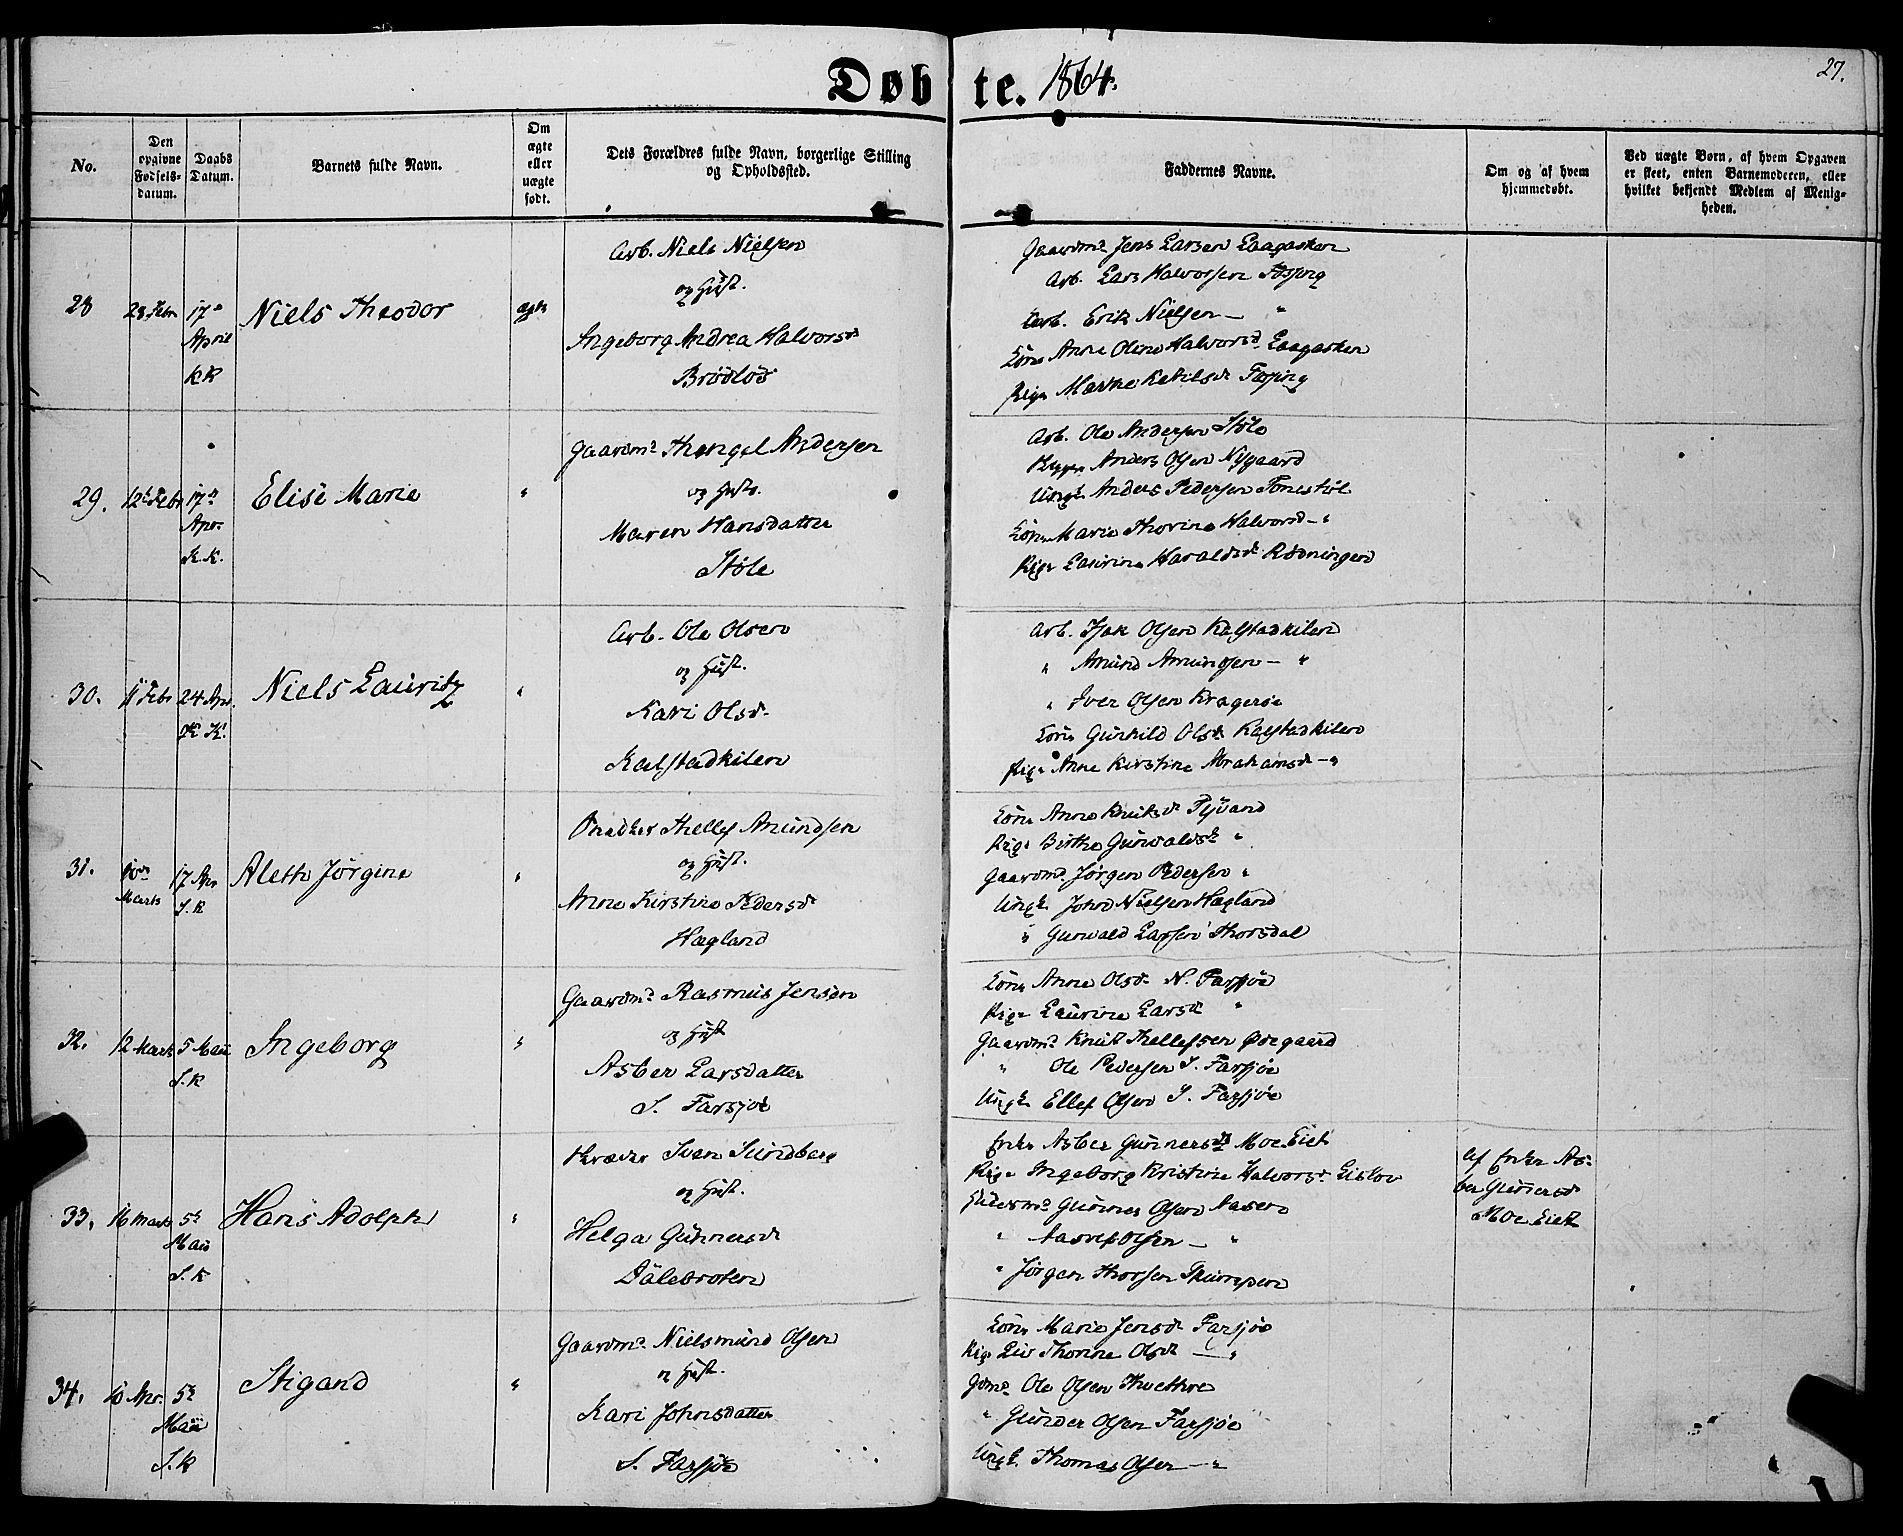 Døbte. 1864.
27.
No.
Den opgivne Fødsels-datum.
Daabs Datum.
Barnets fulde Navn.
Om ægte eller uægte født.
Dets Forældres fulde Navn, borgerlige Stilling og Opholdssted.
Faddernes Navne.
Om og af hvem hjemmedøbt.
Ved uægte Børn, af hvem Opgaven er skeet, enten Barnemoderen, eller hvilket bekjendt Medlem af Menigheden.
28
28 Febr
17de April KK
Niels Theodor
ægte
Arb. Niels Nielsen
og Hust.
Ingeborg Andrea Halvorsd
Brødløs
Gaardm. Jens Larsen Laagasken
Arb. Lars Halvorsen Fossing
Arb. Erik Nielsen — "
Kone Anne Oline Halvorsd. Laagasken
Pige Marthe Ketilsd Fossing
29.
12te Febr
17de Apr. K.K.
Elise Marie
"
Gaardm. Thengel Andersen
og Hustr.
Maren Hansdatter
Støle
Arb. Ole Andersen Støle
Anders Olsen Nygaard
Ungk Anders Pedersen Tonestøl
Kone Marie Thorine Halvorsd — "
Pige Laurine Haraldsd Rødningen
30.
11 Febr
24 Apr. K K.
Niels Lauritz
"
Arb. Ole Olsen
og Hust.
Kari Olsd.
Kalstadkilen
Arb. Isak Olsen Kalstadkilen
" Amund Amundsen — "
" Iver Olsen Kragerøe
Kone Gunhild Olsd Kalstadkilen
Pige Anne Kirstine Abrahamsd — "
31.
10de Marts
17 Apr S.K
Aleth Jørgine
"
Thellef Amundsen
og Hust.
Anne Kirstine Pedersd
Hagland
Kone Anne Knutsd
Pige Birthe Gunvaldsd "
Gaardm. Jørgen Pedersen "
Ungk John Nielsen Hagland
" Gunvald Larsen Thorsdal
32.
12 Marts
5 Mai S.K
Ingeborg
"
Gaardm. Rasmus Jensen
og Hust
Asber Larsdatter
S. Farsjøe
Kone Anne Olsd. N. Farsjøe
Pige Laurine Larsd "
Gaardm. Knut Thellefsen Øiegaard
" Ole Pedersen S. Farsjøe
Ungk Ellef Olsen S. Farsjøe
33.
16 Marts
5te Mai S.K
Hans Adolph
"
Skræder Sven Sundberg
og Hust.
Helga Gunnersd
Dalebroten
Enke Asber Gunnersd Moe Eiet
Pige Ingeborg Kristine Halvorsd
Gaardm. Gunner Olsen Aasen
" Olsen — "
" Jørgen Thorsen
af Enke Asber Gunnersd Moe Eiet
34.
10 Apr.
5te Mai S.K
Stigand
"
Gaardm. Nielsmund Olsen
og Hust.
Kari Johnsdatter
S. Farsjøe
Kone Marie Jensd Farsjøe
Pige Liv Thorine Olsd — "
Gdm. Ole Olsen Thvethre
" Gunder Olsen Farsjøe
Ungk. Thomas Olsen — "